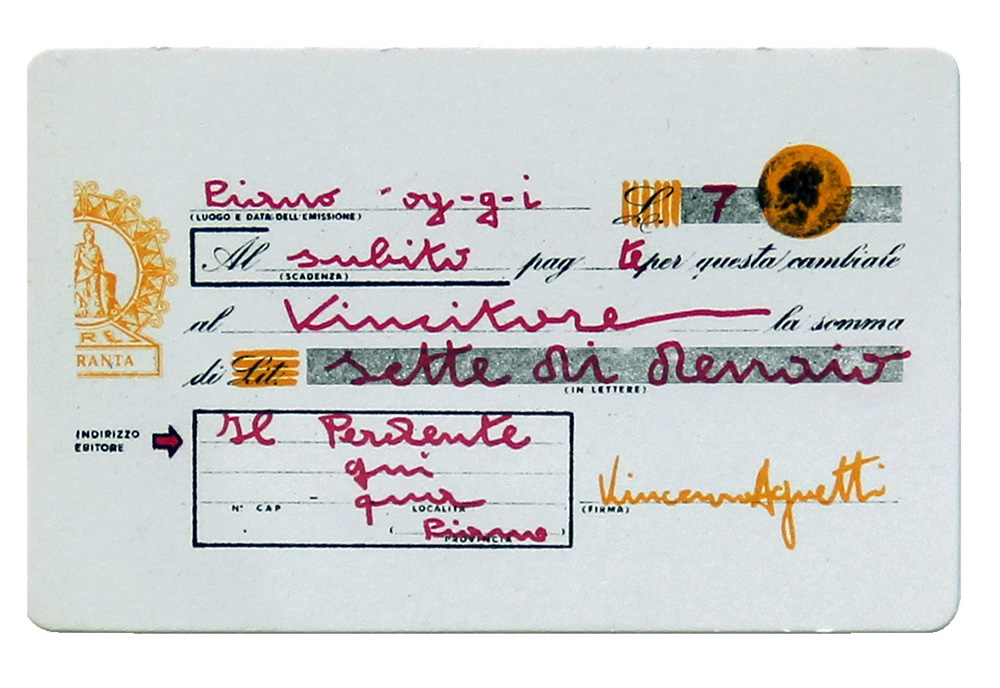 Piano og-g-i L. 7
(LUOGO E DATA DELL'EMISSIONE)
Al subito pag te per questa cambiale
(SCADENZA)
al Vincitore la somma
RE
RANTA
di Lit. sette di denaro
(IN LETTERE)
INDIRIZZO
EBITORE
Il Perdente
qui
qua
N° CAP LOCALITÀ
Piano
(PROVINCIA)
Vincenzo Agnetti
(FIRMA)